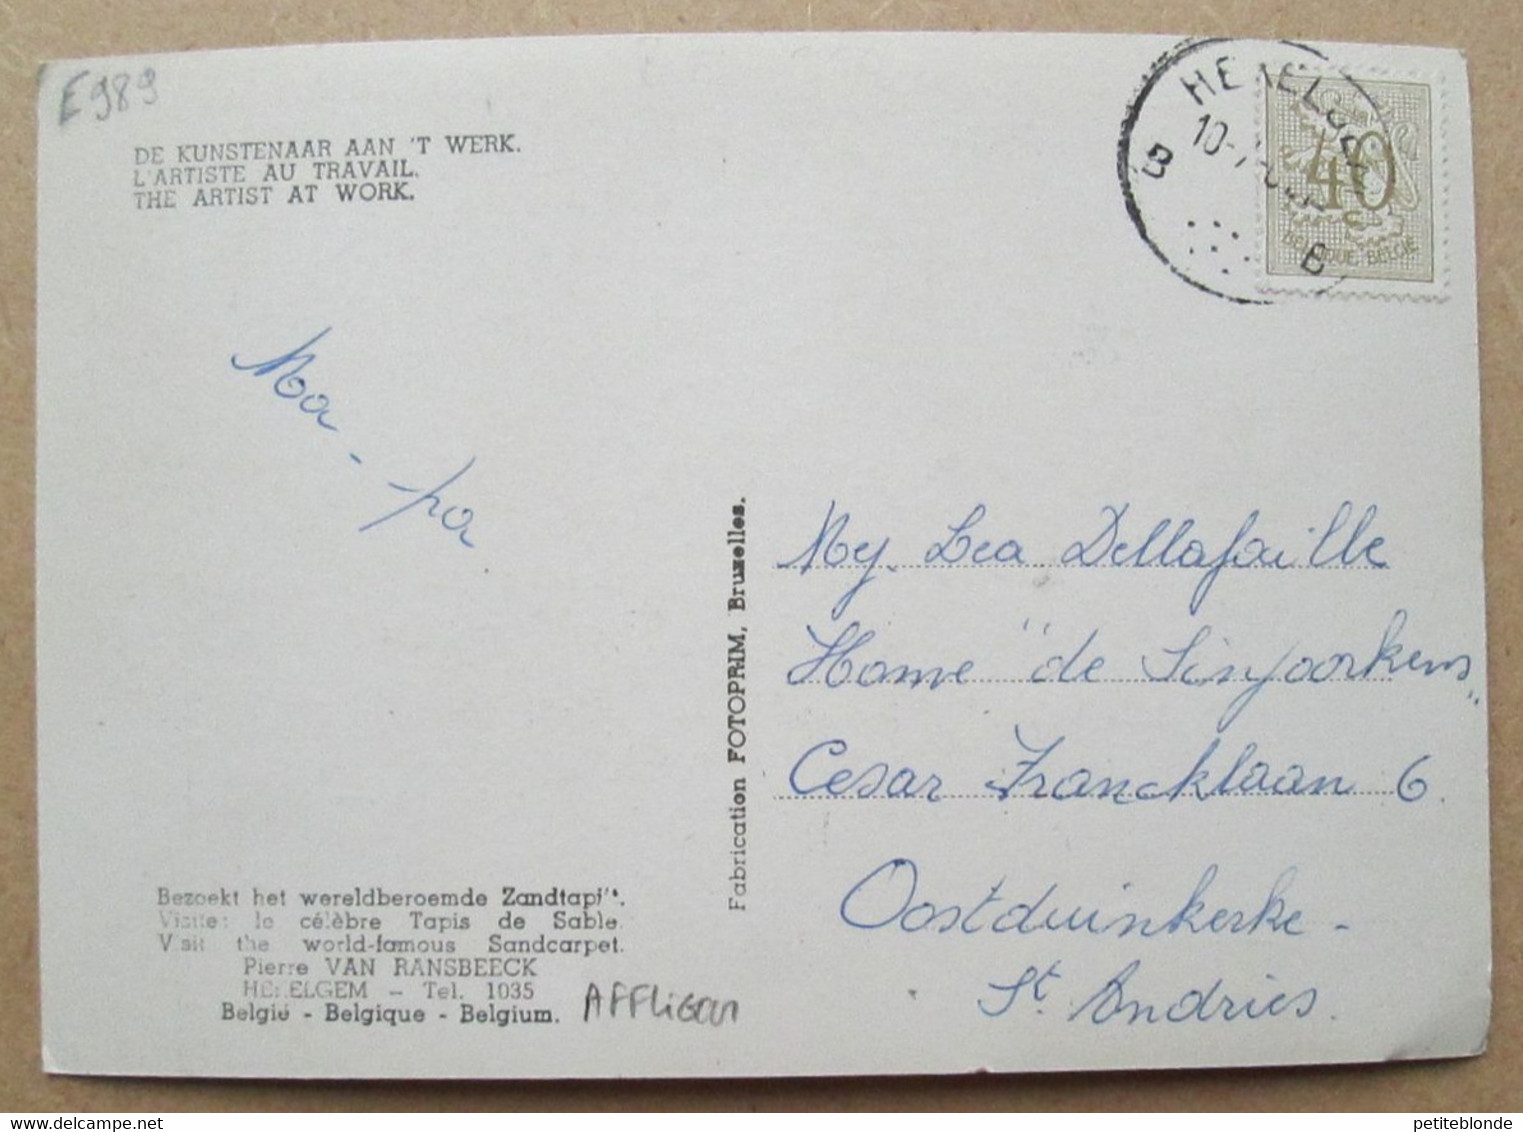 E989
DE KUNSTENAAR AAN 'T WERK.
L'ARTISTE AU TRAVAIL.
THE ARTIST AT WORK.
40
BELGIQUE BELGIË
B
B
Ma - pa
Fabrication FOTOPRIM, Bruxelles.
Mej. Lea Dellafaille
Home "de Sinjoorkens"
Cesar Francklaan 6
Oostduinkerke -
St. Andries.
Bezoekt het wereldberoemde Zandtapijt.
Visite: le célèbre Tapis de Sable
Visit the world-famous Sandcarpet.
Pierre VAN RANSBEECK
HEKELGEM - Tel. 1035
België - Belgique - Belgium.
AFFLIGEM
petiteblonde